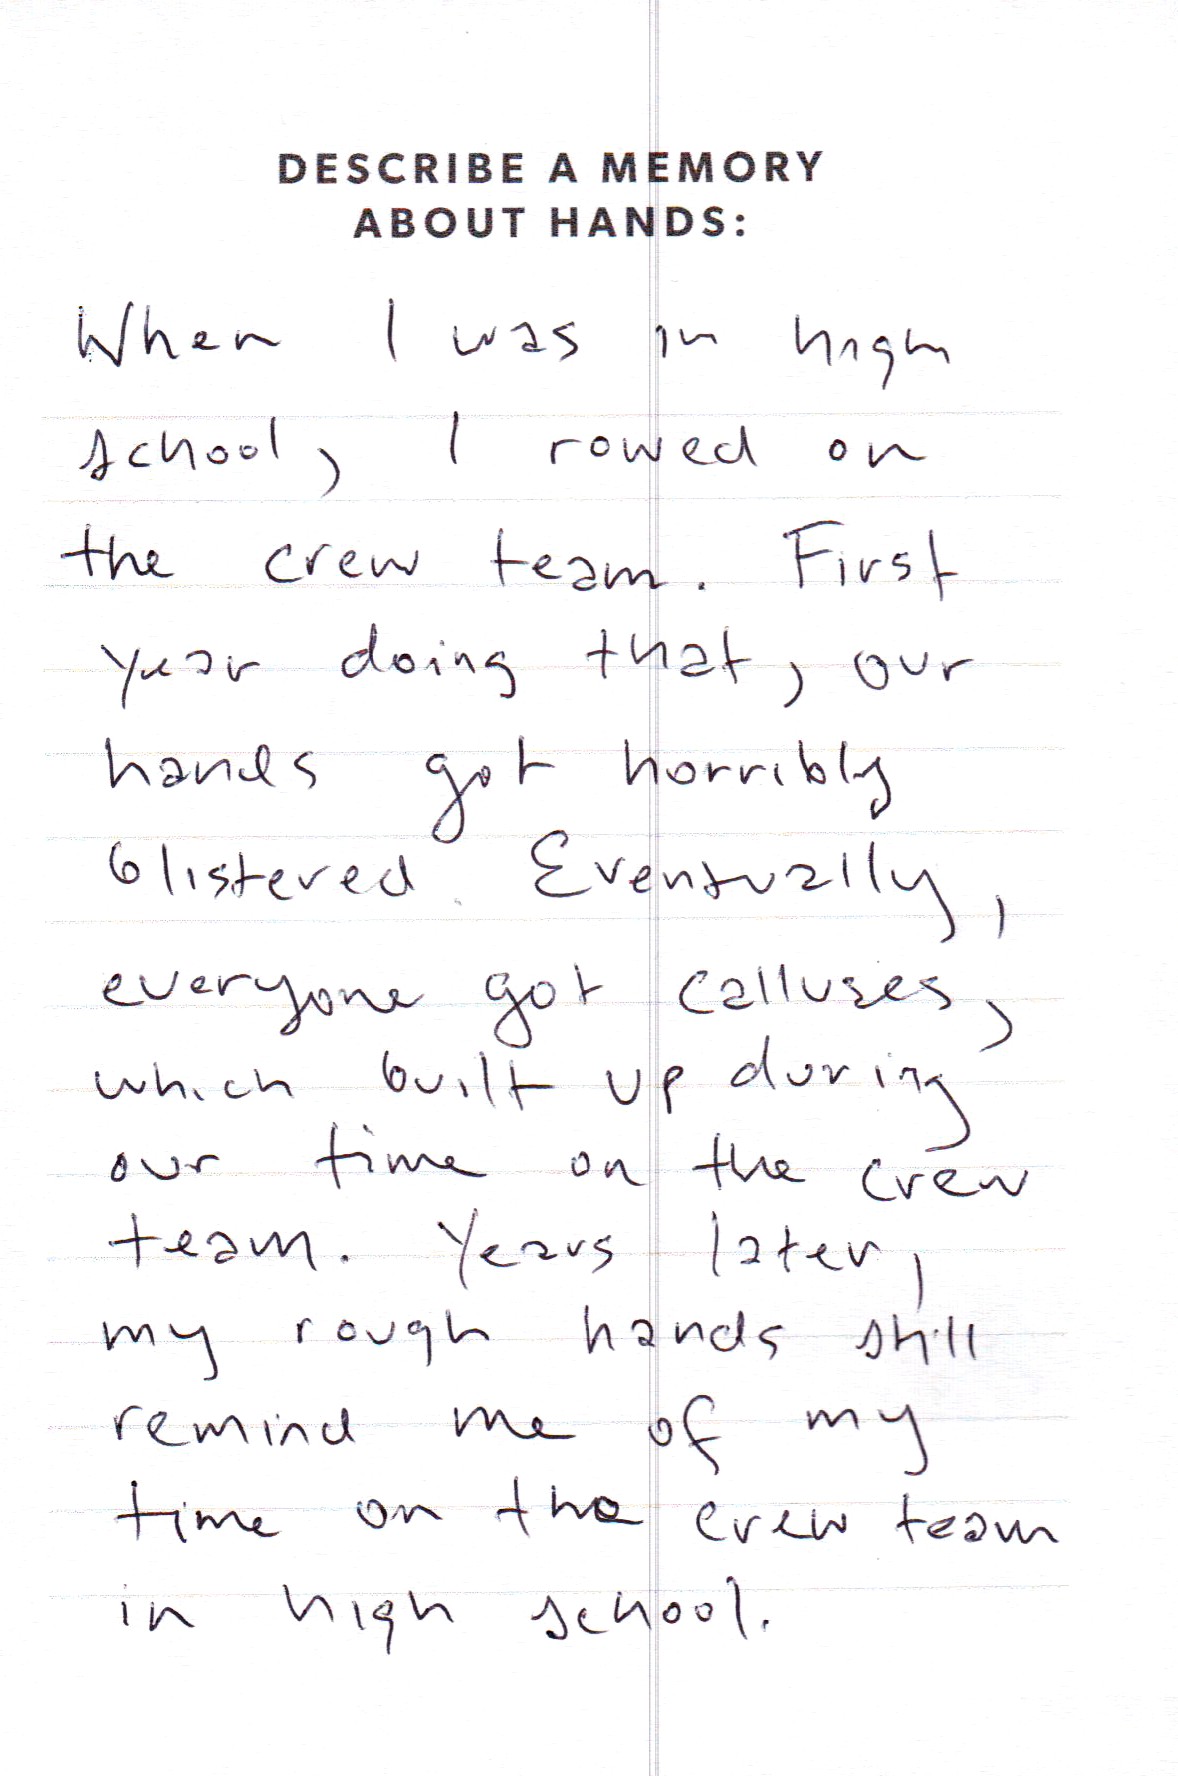 DESCRIBE A MEMORY
ABOUT HANDS:
When I was in high
school, I rowed on
the crew team. First
year doing that, our
hands got horribly
blistered. Eventually,
everyone got calluses,
which built up during
our time on the crew
team. Years later,
my rough hands still
remind me of my
time on the crew team
in high school.